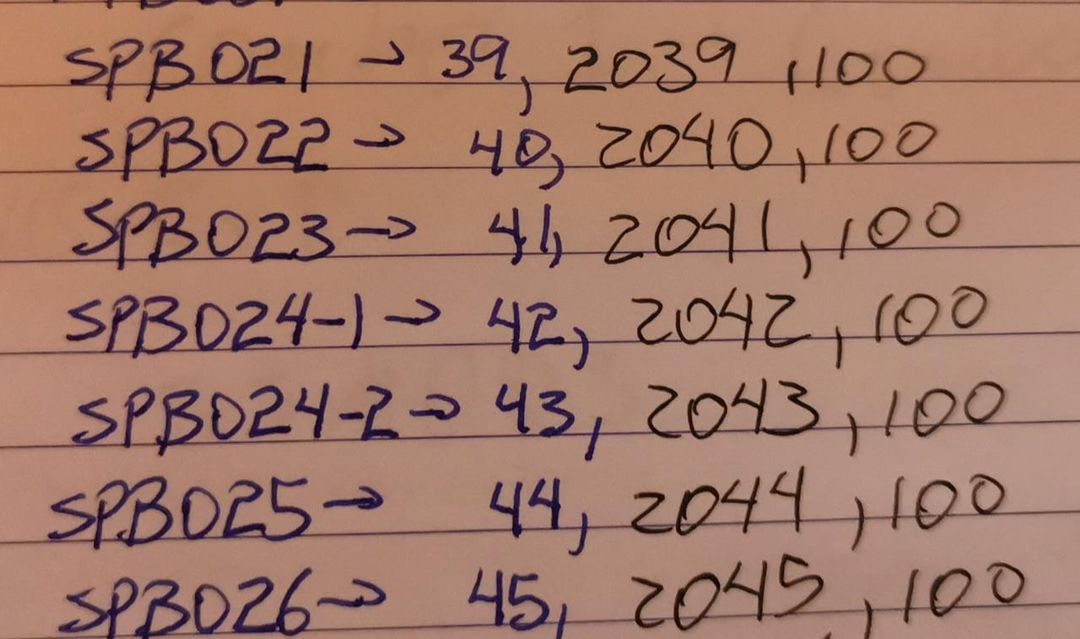 SPB021 → 39, 2039, 100
SPB022 → 40, 2040, 100
SPB023 → 41, 2041, 100
SPB024-1 → 42, 2042, 100
SPB024-2 → 43, 2043, 100
SPB025 → 44, 2044, 100
SPB026 → 45, 2045, 100